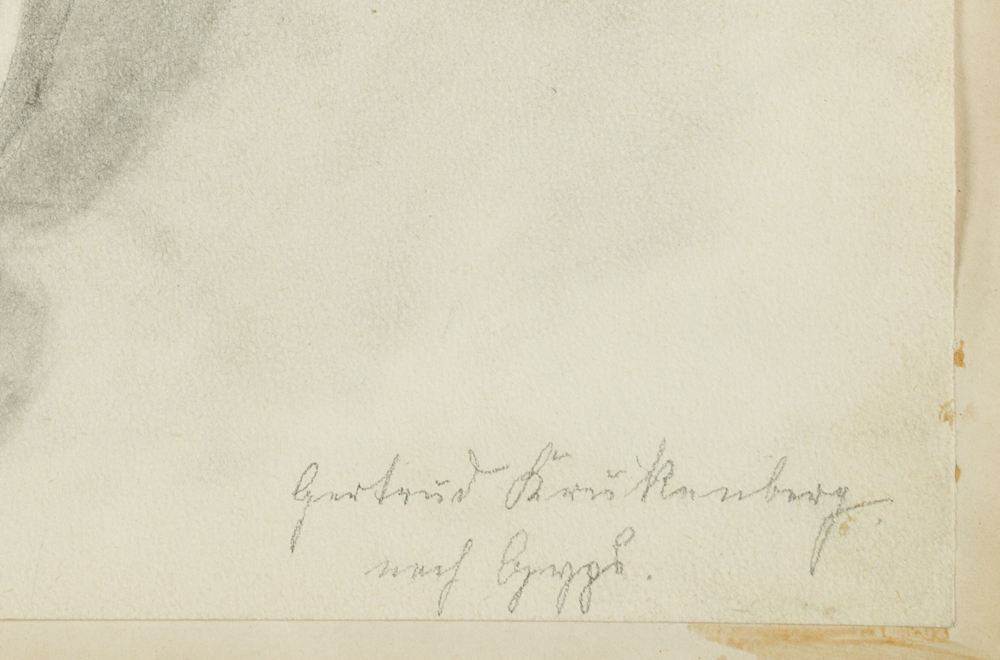 Gertrud Kruckenberg
nach Gyps.